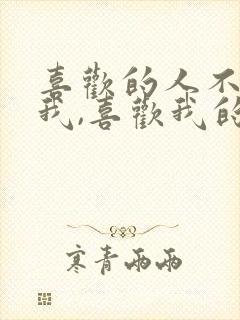 喜歡的人不
我,喜歡我的
寒青兩兩